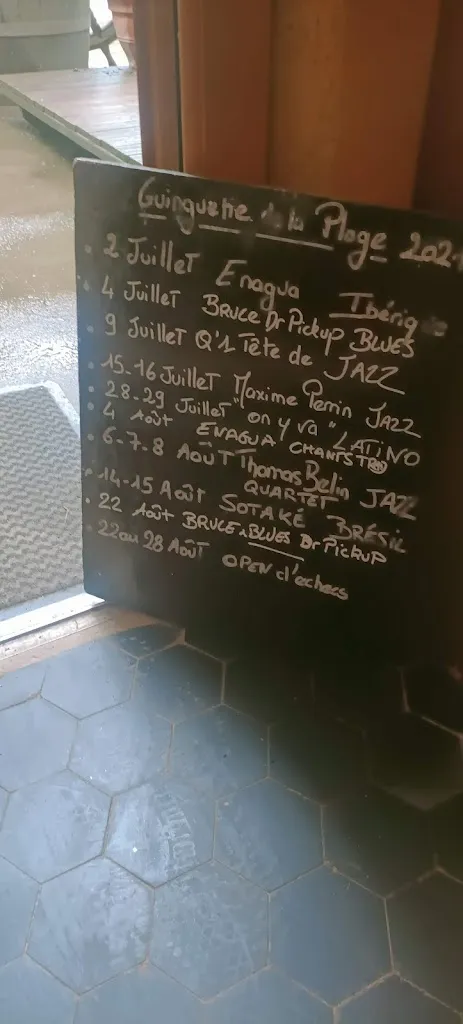 Guinguette de la Plage 2021
• 2 Juillet Enagua Ibérique
• 4 Juillet Bruce Dr Pickup BLUES
• 9 Juillet Q'1 Tête de JAZZ
• 15-16 Juillet Maxime Perrin JAZZ
• 28-29 Juillet "on y va" LATINO
• 4 Août ENAGUA CHANTS TRO
• 6-7-8 AOÛT Thomas Belin JAZZ
QUARTET
• 14-15 Août SOTAKÉ BRÉSIL
• 22 Août BRUCE BLUES Dr Pickup
• 22 au 28 AOÛT OPEN d'échecs